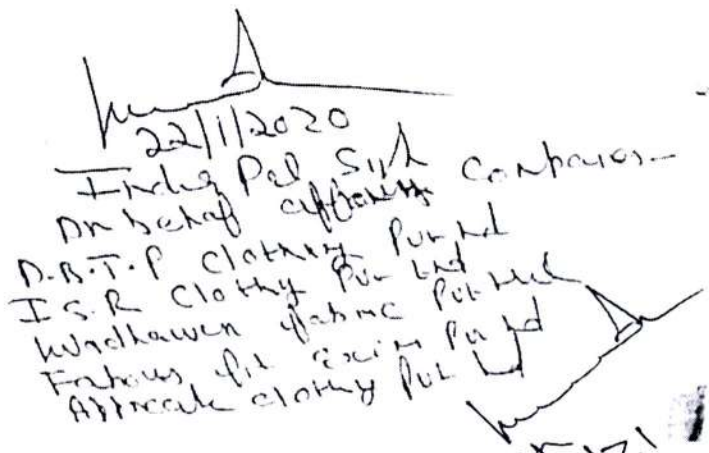 22/1/2020
Inder Pal Singh
On behalf of companies -
D.B.T.P Clothing Pvt Ltd
I.S.R Clothing Pvt Ltd
Wadhawan fabric Pvt Ltd
Famous fit Exim Pvt Ltd
Clothing Pvt Ltd